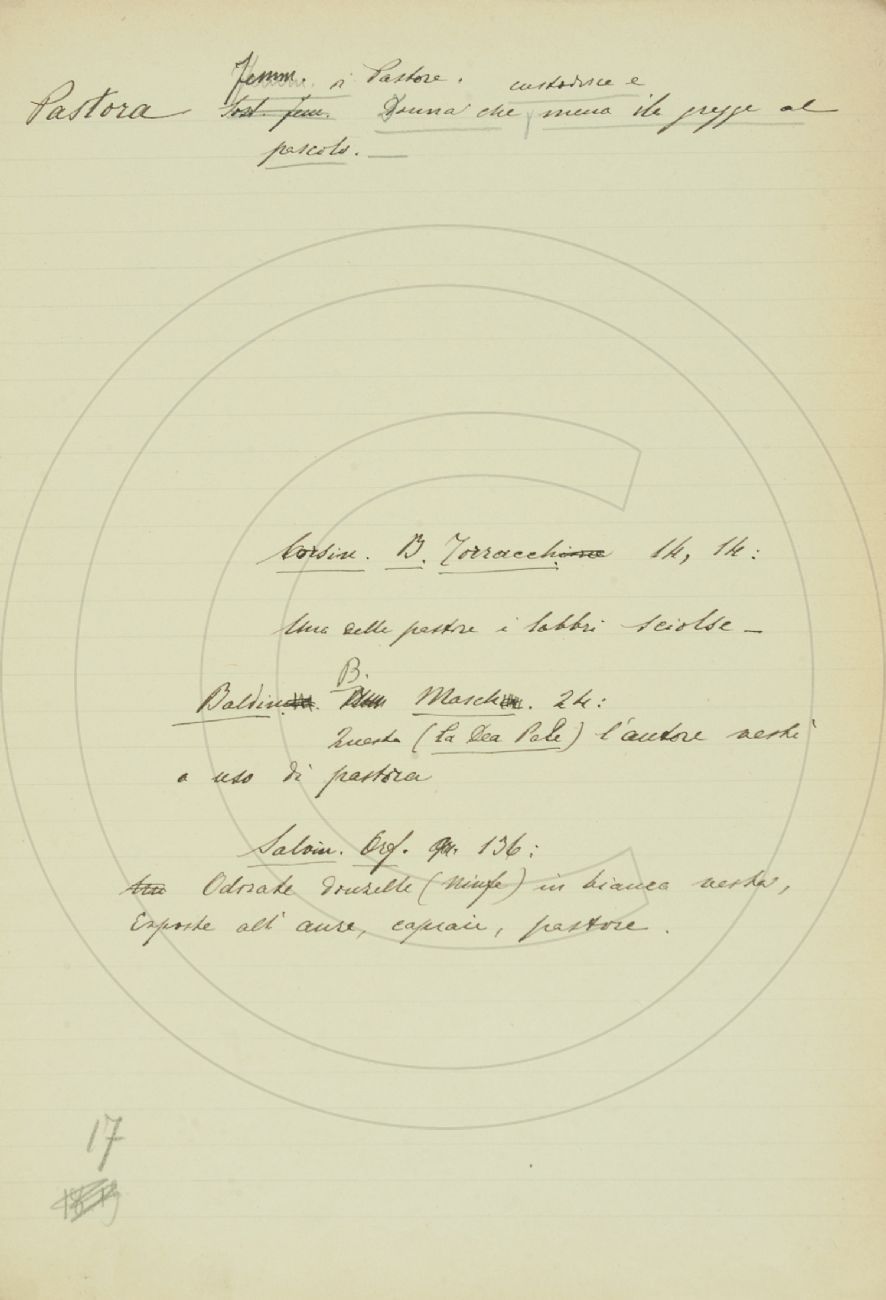 Femm. di Pastore. custodisce e
Pastora Sost. fem. Donna che mena il gregge al
pascolo. —
Corsin. B. Torracchione 14, 14:
Una delle pastore i labbri sciolse —
B.
Baldin. Masch. 24:
Questa (la Dea Pale) l'autore vestì
a uso di pastora
Salvin. Orf. 136:
Odorate donzelle (ninfe) in bianca vesta,
Esposte all' aure, capraie, pastore.
17